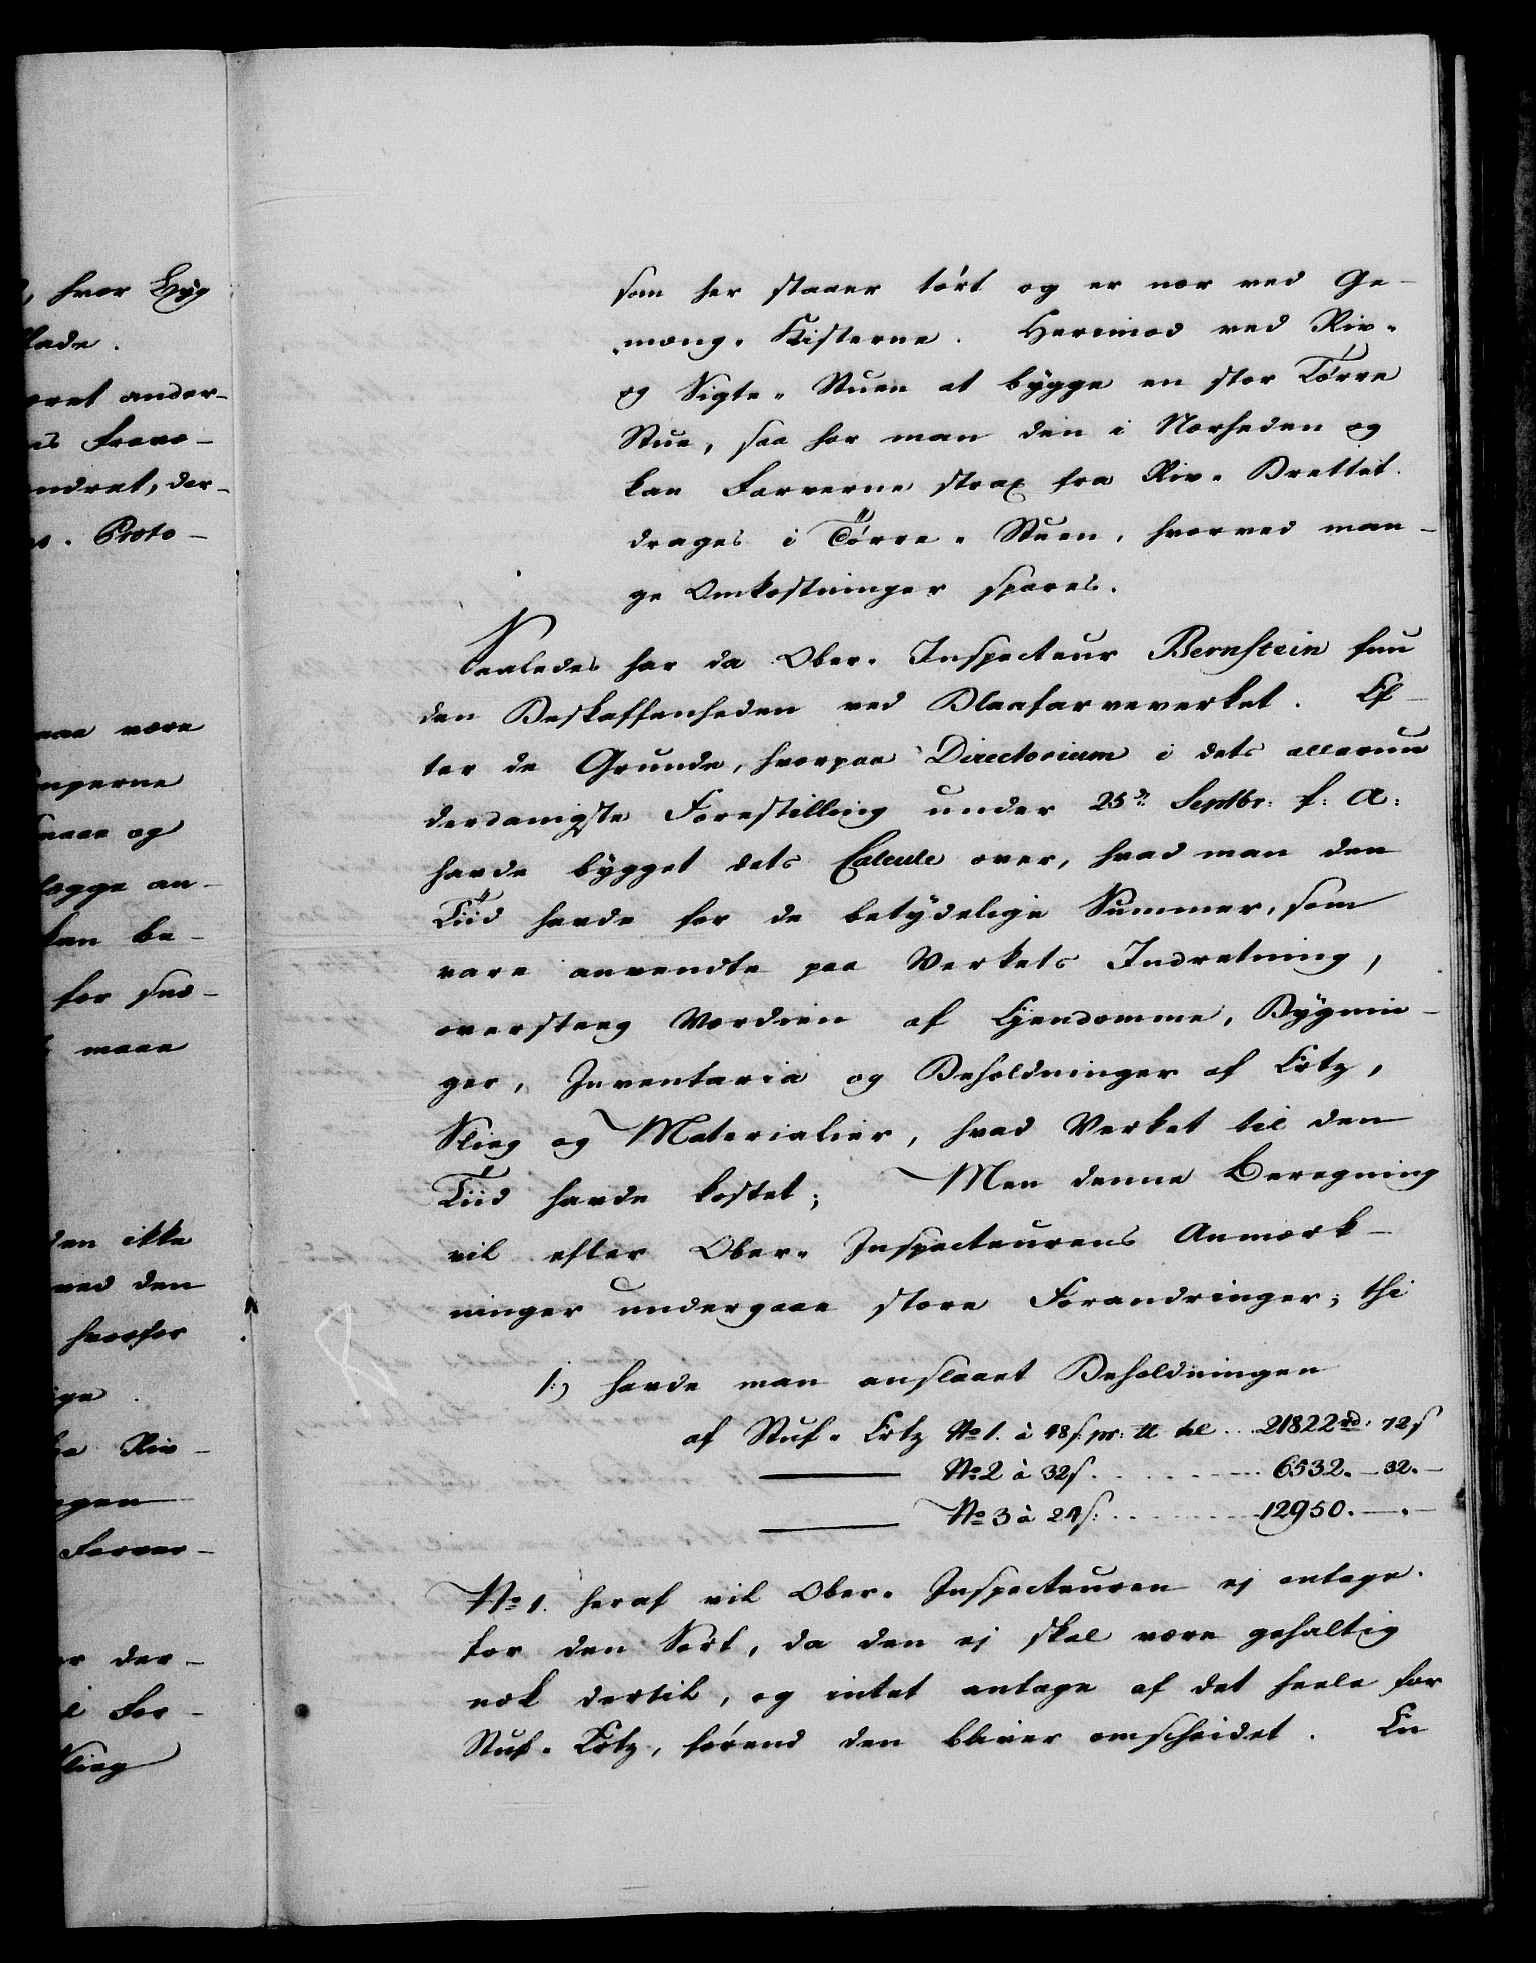 , hvor Lÿg
lade.
æret ander-
es Frave-
ndret, der-
Proto-
aae være
ngerne
aaae og
lægge an-
kan be-
for svo-
maae
den ikke
ved den
hvorfor
ige.
Riv-
gen
Farver-
er der-
Far-
Slieg
som her staaer tört og er nær ved Ge-
mæng-Kisterne. Herimod ved Riv-
og Sigte-Stuen at bÿgge en stor Törre
Stue, saa har man den i Nærheden og
kan Farverne strax fra Riv-Brettet
drages i Törre-Stuen, hvorved man-
ge Omkostninger spares.
Saaledes har da Ober-Inspecteur Bernstein fun
den Beskaffenheden ved Blaafarveverket. Ef-
ter de Grunde, hvorpaa Directorium i dets allerun
derdanigste Forestilling under 25de Septbr: f: A:
havde bÿgget dets Calcule over, hvad man den
Tiid havde for de betÿdelige Summer, som
vare anvendte paa Verkets Indretning,
oversteeg Værdien af Ejendomme, Bÿgnin-
ger, Inventaria og Beholdninger af Ertz,
Slieg og Materialier, hvad Verket til den
Tiid havde kostet; Men denne Beregning
vil efter Ober-Inspecteurens Anmærk-
ninger undergaae store Forandringer; thi
1:) havde man anslaaet Beholdningen
af Stuf-Ertz No 1. à 48 s: pr: ℔ til ... 21822 rd: 72 s
——— No 2 à 32 s. ........ 6532. - 32. -
——— No 3 à 24 s: ........ 12950. - . -
No 1. heraf vil Ober-Inspecteuren ej antage
for den Sort, da den ej skal være gehaltig
nok dertil, og intet antage af det heele for
Stuf-Ertz, förend den bliver omscheidet. En